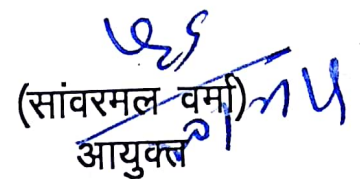 (सांवरमल वर्मा)
आयुक्त